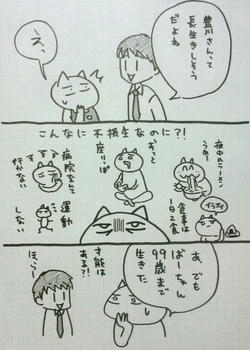 豊川さんって
長生きしそう
だよね
え、
こんなに不摂生なのに?!
夜中のラーメン
うめー
イライラ
食事は
1日2食
ずーっと
座りっぱ
病院なんて
行かない
運動
しない
あ、でも
ばーちゃん
99歳まで
生きた
才能は
ある?!
ほらー